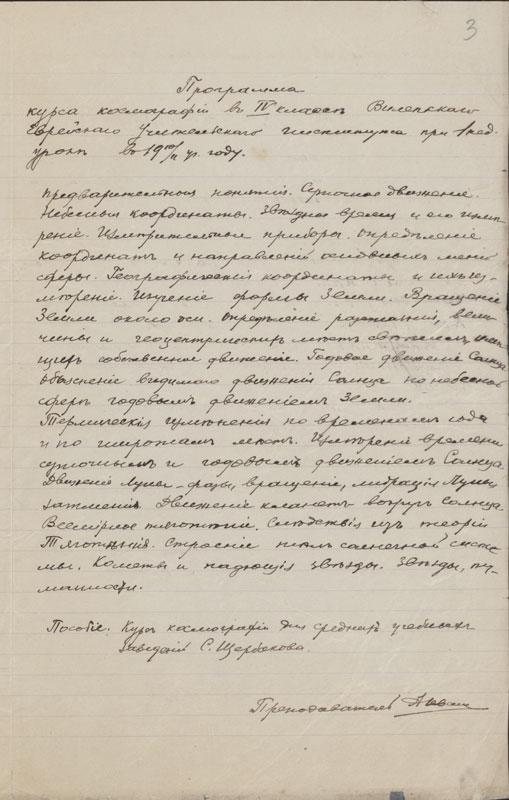 3
Программа
курса космографiи въ IV классѣ Виленскаго
Еврейскаго Учительскаго института при 1 нед.
урокѣ въ 1910/11 уч. году.
Предварительныя понятiя. Суточное движенiе.
Небесныя координаты. Звѣздное время и его измѣ-
ренiе. Измѣрительные приборы. Опредѣленiе
координатъ и направленiй основныхъ линiй
сферы. Географическiя координаты и ихъ из-
мѣренiе. Изученiе формы Земли. Вращенiе
Земли около оси. Опредѣленiе разстоянiй, вели-
чины и мѣстъ свѣтилъ, имѣю-
щихъ собственное движенiе. Годовое движенiе Солнца
объясненiе видимаго движенiя Солнца по небесной
сферѣ годовымъ движенiемъ Земли.
Термическiя измѣненiя по временамъ года
и по широтамъ мѣстъ. Измѣренiе времени
суточнымъ и годовымъ движенiемъ Солнца.
Движенiе Луны - фазы, вращенiе, либрацiя Луны,
затменiя. Движенiе планетъ вокругъ Солнца.
Всемiрное тяготѣнiе. Слѣдствiя изъ теорiи
тяготѣнiя. Строенiе тѣлъ солнечной систе-
мы. Кометы и падающiя звѣзды. Звѣзды, ту-
манности.
Пособiе: Курсъ космографiи для среднихъ учебныхъ
заведенiй С. Щербакова.
Преподаватель